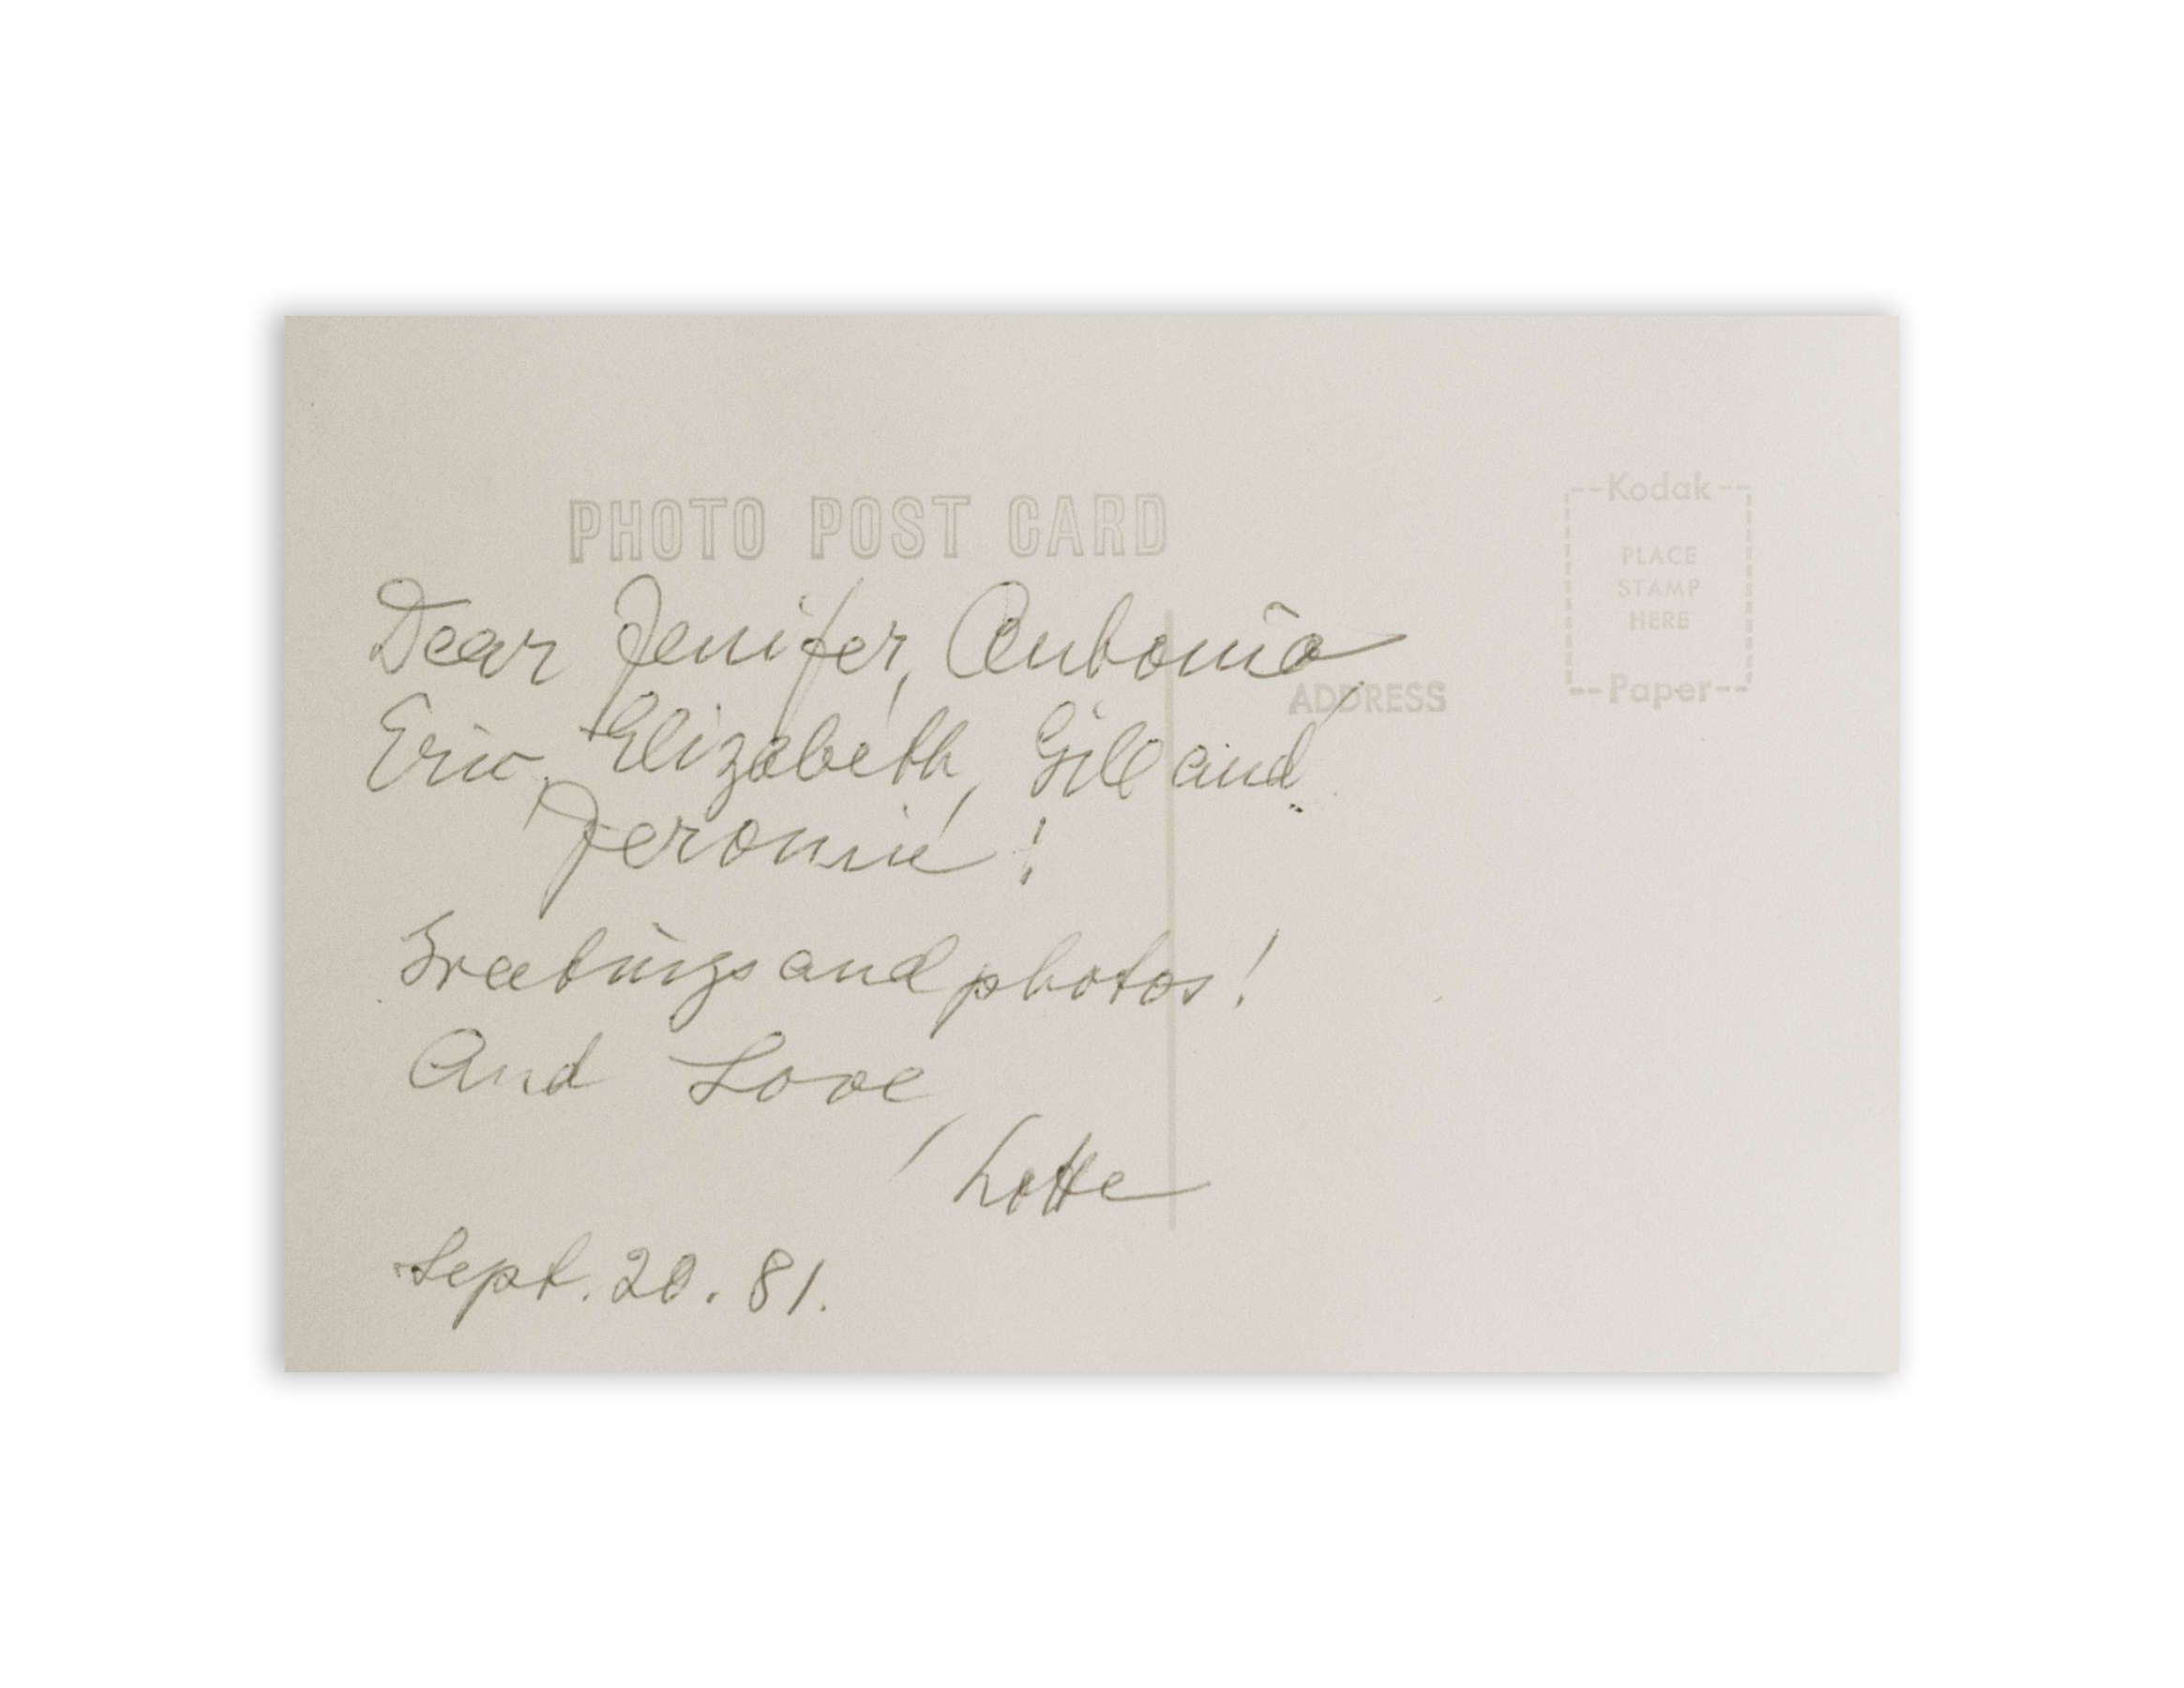 PHOTO POST CARD
Dear Jenifer, Antonia,
Eric, Elizabeth, Gill and
Jeromie!
Greetings and photos!
And Love,
Lotte
Sept. 20. 81.
ADDRESS
Kodak
PLACE
STAMP
HERE
Paper